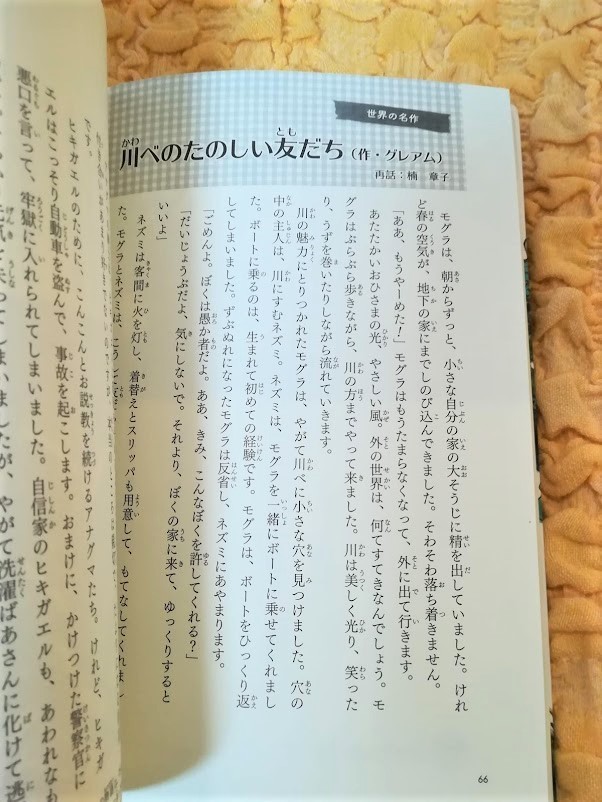 世界の名作
川べのたのしい友だち(作・グレアム)
再話:楠 章子
モグラは、朝からずっと、小さな自分の家の大そうじに精を出していました。けれ
ど春の空気が、地下の家にまでしのび込んできました。そわそわ落ち着きません。
「ああ、もうやーめた!」モグラはもうたまらなくなって、外に出て行きます。
あたたかいおひさまの光、やさしい風。外の世界は、何てすてきなんでしょう。モ
グラはぶらぶら歩きながら、川の方までやって来ました。川は美しく光り、笑った
り、うずを巻いたりしながら流れていきます。
川の魅力にとりつかれたモグラは、やがて川べに小さな穴を見つけました。穴の
中の主人は、川にすむネズミ。ネズミは、モグラを一緒にボートに乗せてくれまし
た。ボートに乗るのは、生まれて初めての経験です。モグラは、ボートをひっくり返
してしまいました。ずぶぬれになったモグラは反省し、ネズミにあやまります。
「ごめんよ。ぼくは愚か者だよ。ああ、きみ、こんなぼくを許してくれる?」
「だいじょうぶだよ、気にしないで。それより、ぼくの家に来て、ゆっくりすると
いいよ」
ネズミは客間に火を灯し、着替えとスリッパも用意して、もてなしてくれまし
た。モグラとネズミは、こうして
66
です。
ヒキガエルのために、こんこんとお説教を続けるアナグマたち。けれど、ヒキガ
エルはこっそり自動車を盗んで、事故を起こします。おまけに、かけつけた警察官に
悪口を言って、牢獄に入れられてしまいました。自信家のヒキガエルも、あわれなも
てしまいましたが、やがて洗濯ばあさんに化けて逃